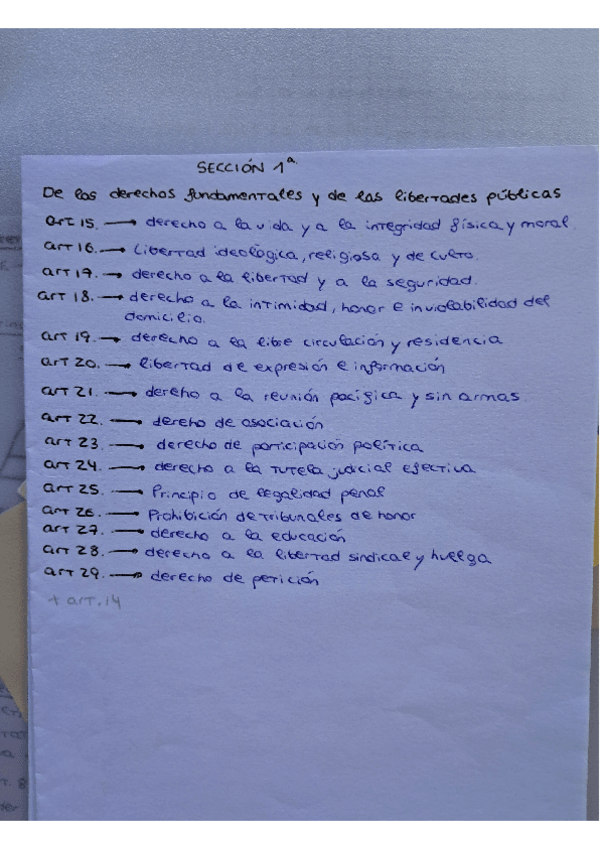 SECCIÓN 1ª
De los derechos fundamentales y de las libertades públicas
art 15. → derecho a la vida y a la integridad física y moral.
art 16. → Libertad ideológica, religiosa y de culto.
art 17. → derecho a la libertad y a la seguridad.
art 18. → derecho a la intimidad, honor e inviolabilidad del
domicilio.
art 19. → derecho a la libre circulación y residencia
art 20. → libertad de expresión e información
art 21. → dereho a la reunión pacífica y sin armas
art 22. → dereho de asociación
art 23. → derecho de participación política
art 24. → derecho a la tutela judicial efectiva
art 25. → Principio de legalidad penal
art 26. → Prohibición de tribunales de honor
art 27. → derecho a la educación
art 28. → derecho a la libertad sindical y huelga
art 29. → derecho de petición
+ art. 14